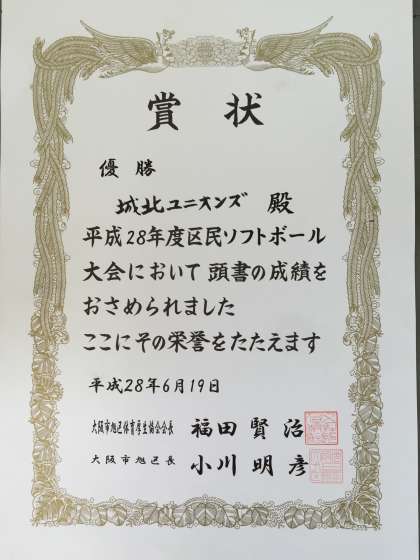 賞状
優勝
城北ユニオンズ 殿
平成28年度区民ソフトボール
大会において頭書の成績を
おさめられました
ここにその栄誉をたたえます
平成28年6月19日
大阪市旭区体育厚生協会会長 福田賢治
大阪市旭区長 小川明彦